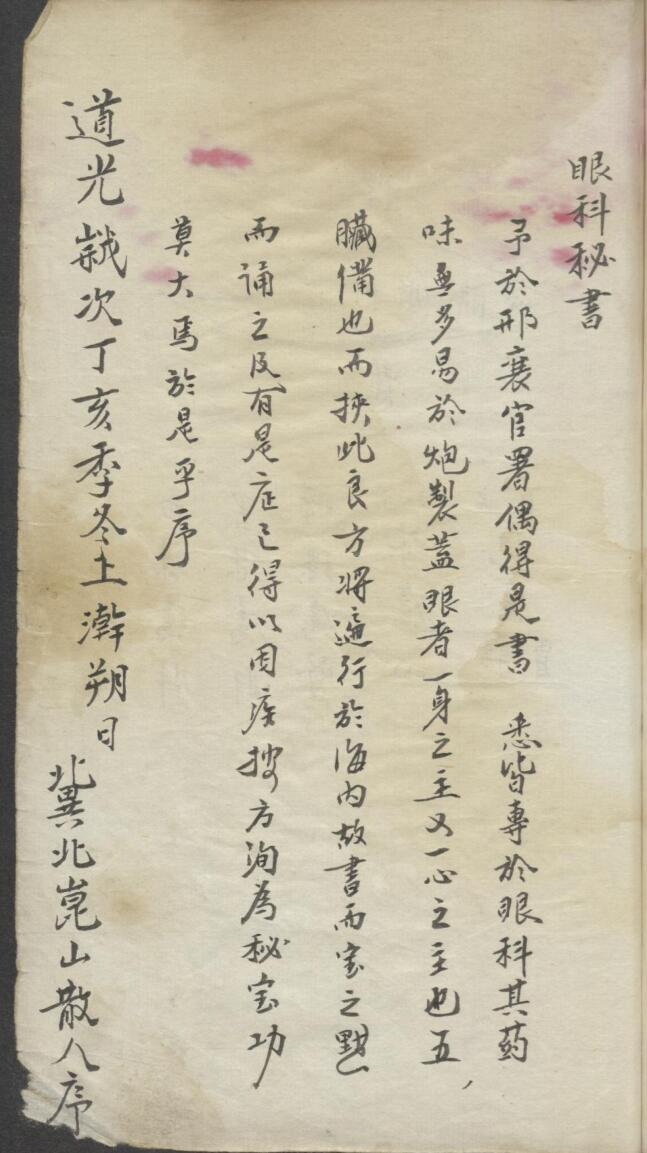 眼科秘書
予於邢襄官署偶得是書 悉皆專於眼科其药
味無多易於炮製蓋眼者一身之主又一心之主也五
臟備也而挾此良方將遍行於海内故書而宝之默
而诵之及有是症已得以因疾按方洵為秘宝功
莫大焉於是乎序
道光歲次丁亥季冬上澣朔日
冀北崑山散人序